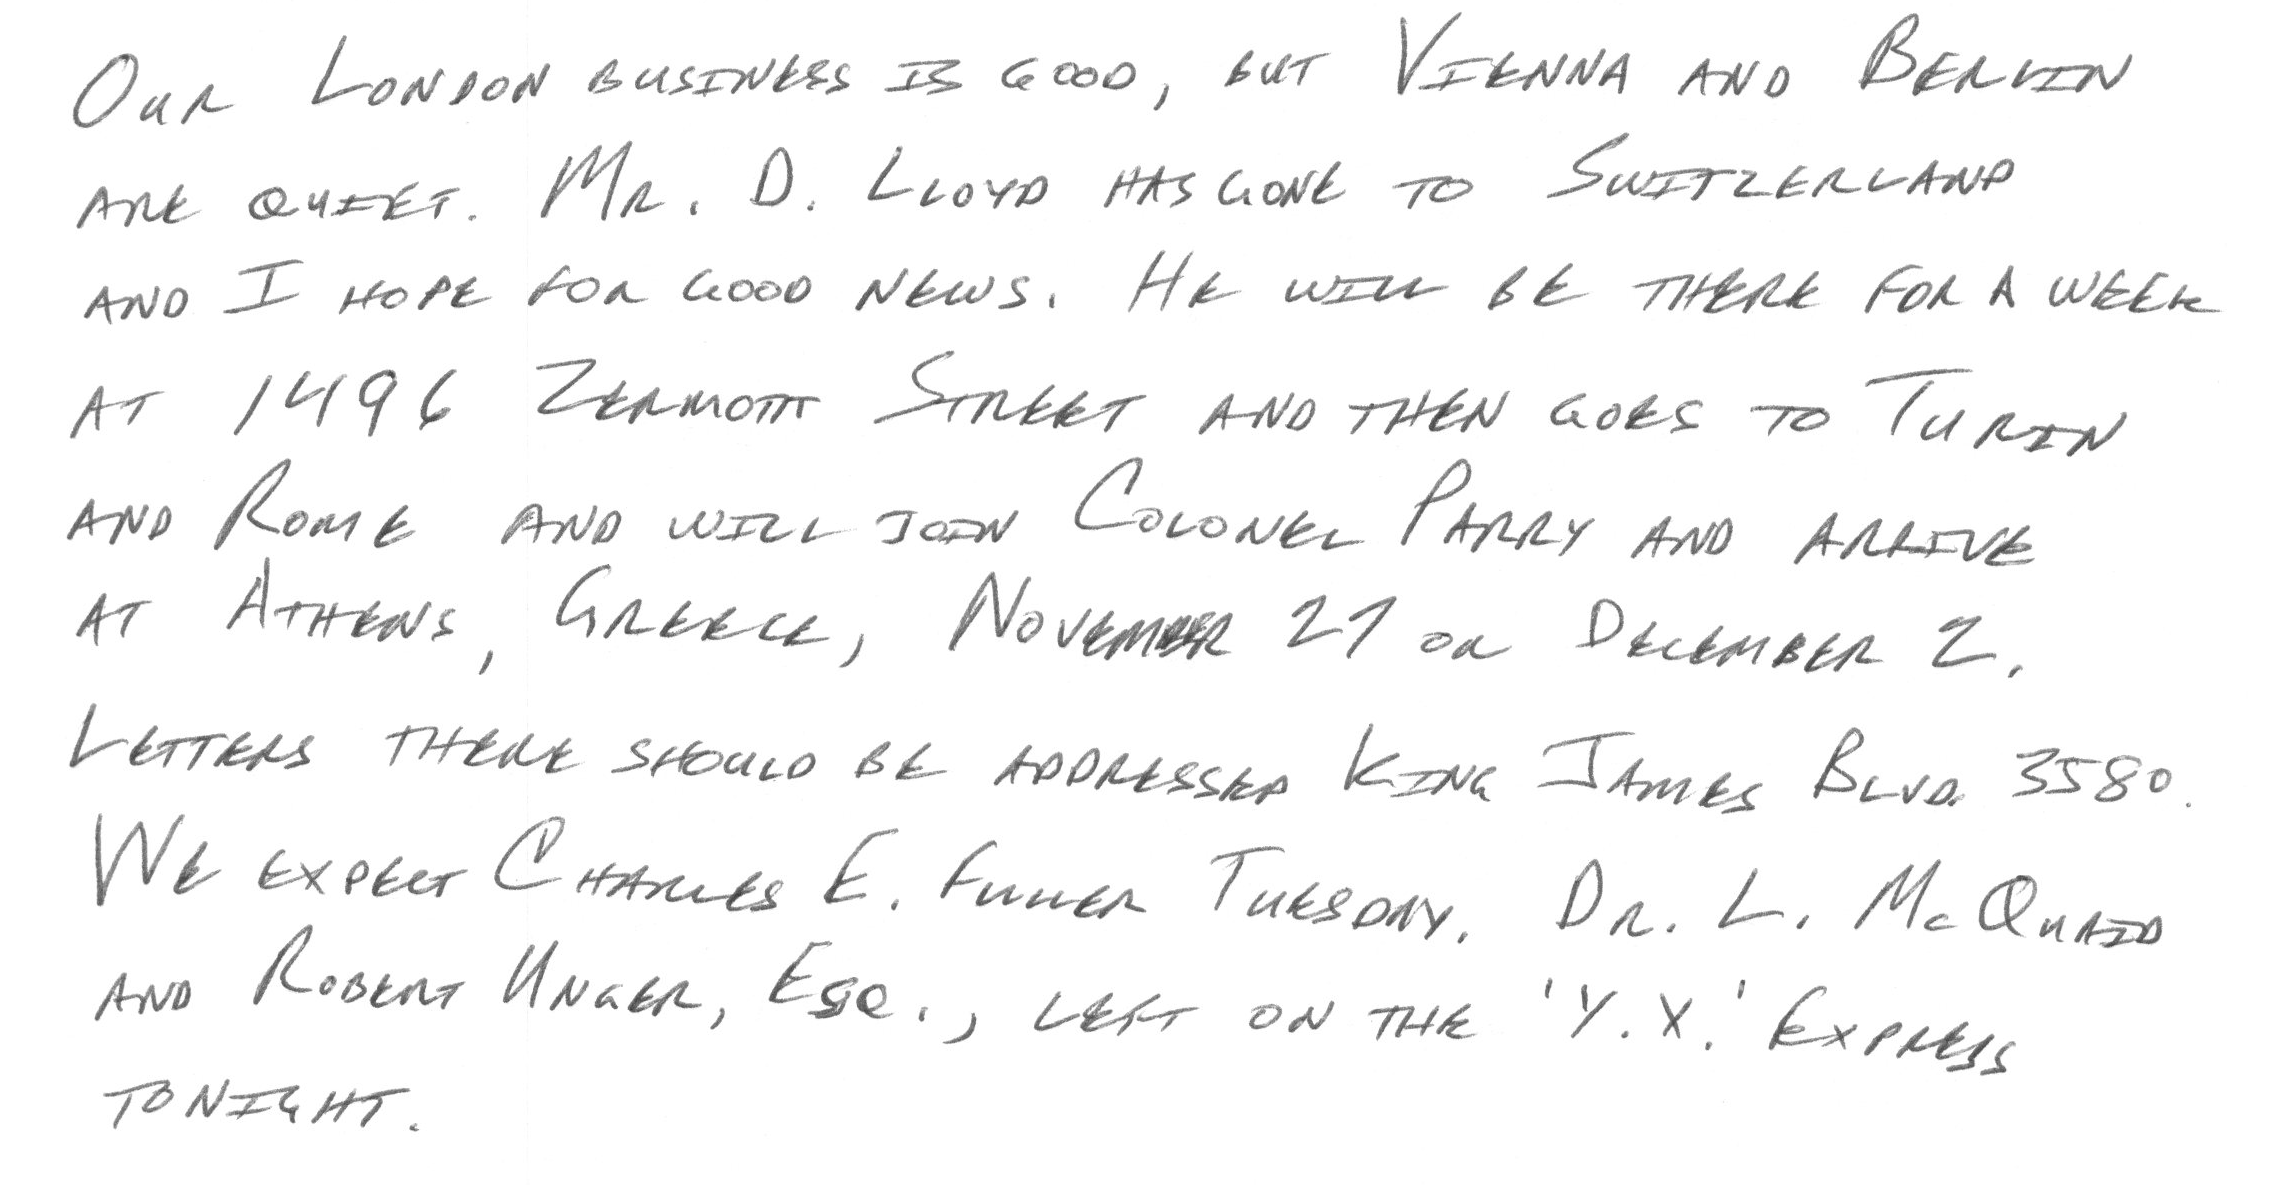 Our London business is good, but Vienna and Berlin
are quiet. Mr. D. Lloyd has gone to Switzerland
and I hope for good news. He will be there for a week
at 1496 Zermott Street and then goes to Turin
and Rome and will join Colonel Parry and arrive
at Athens, Greece, November 27 or December 2.
Letters there should be addressed King James Blvd. 3580.
We expect Charles E. Fuller Tuesday. Dr. L. McQuaid
and Robert Unger, Esq., left on the 'Y.X.' Express
tonight.